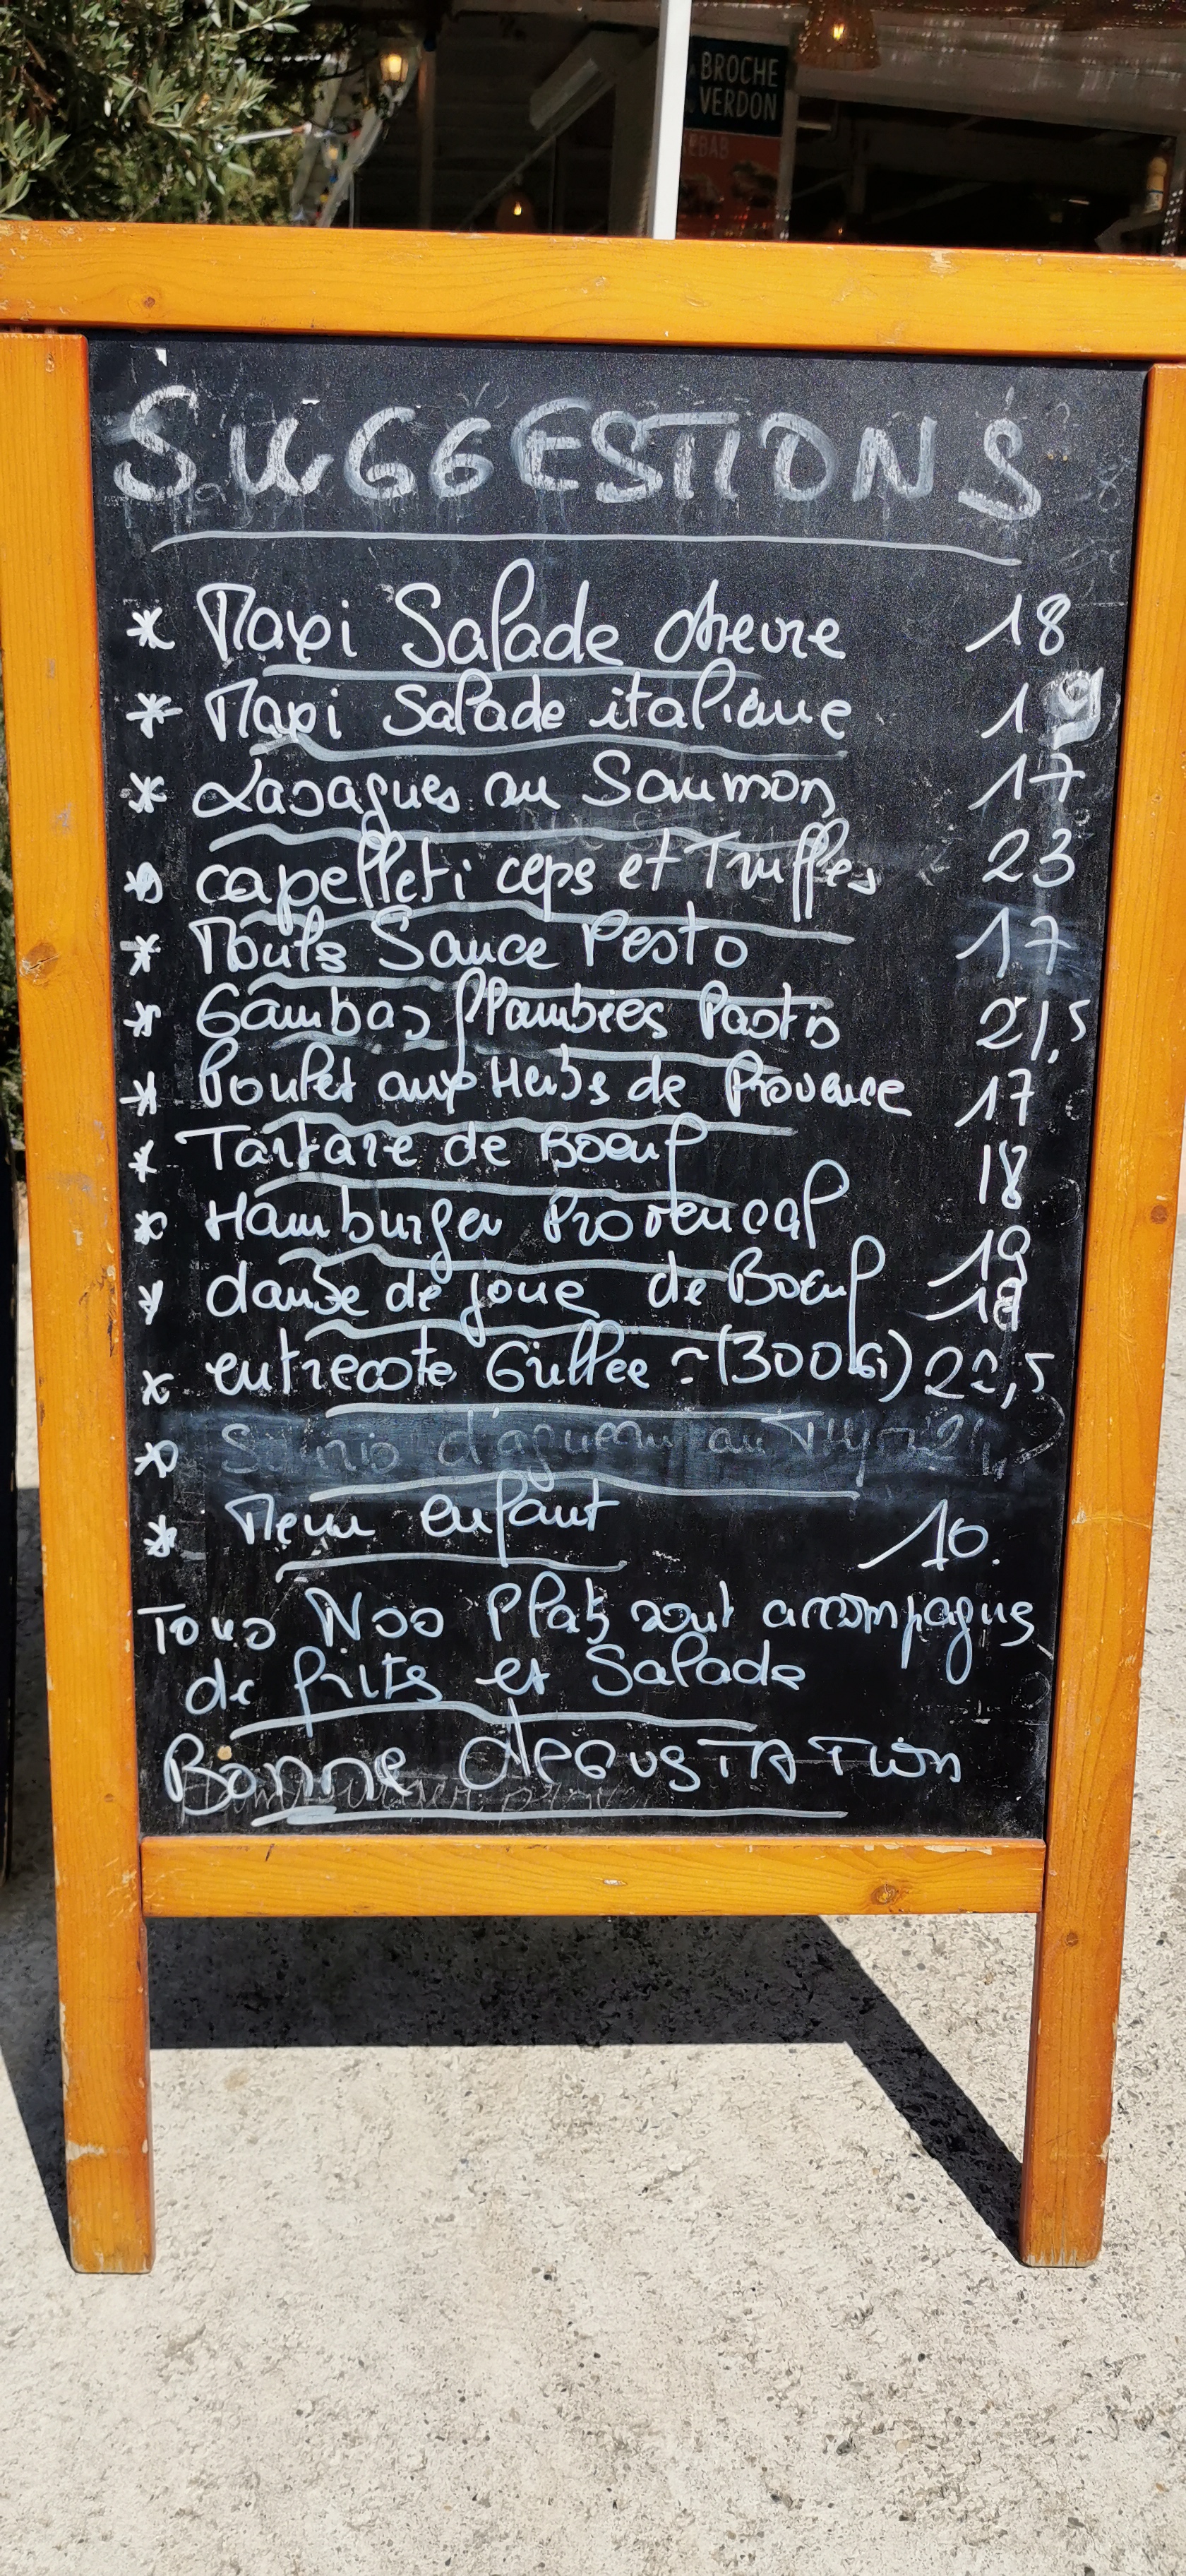 BROCHE
VERDON
EBAB
SUGGESTIONS
* Maxi Salade chevre 18
* Maxi Salade italienne 19
* Lasagnes au Saumon 17
* capelleti ceps et Truffes 23
* Mouls Sauce Pesto 17
* Gambas flambées Pastis 21,5
* Poulet aux Herbs de Provence 17
* Tartare de Boeuf 18
* Hamburger Provencal 19
* daube de joue de Boeuf 18
* entrecote Grillee ~ (300G) 22,5
* d'agneau au
* Menu enfant 10
Tous Nos Plats sont accompagnes
de frites et Salade
Bonne dEGUSTATION